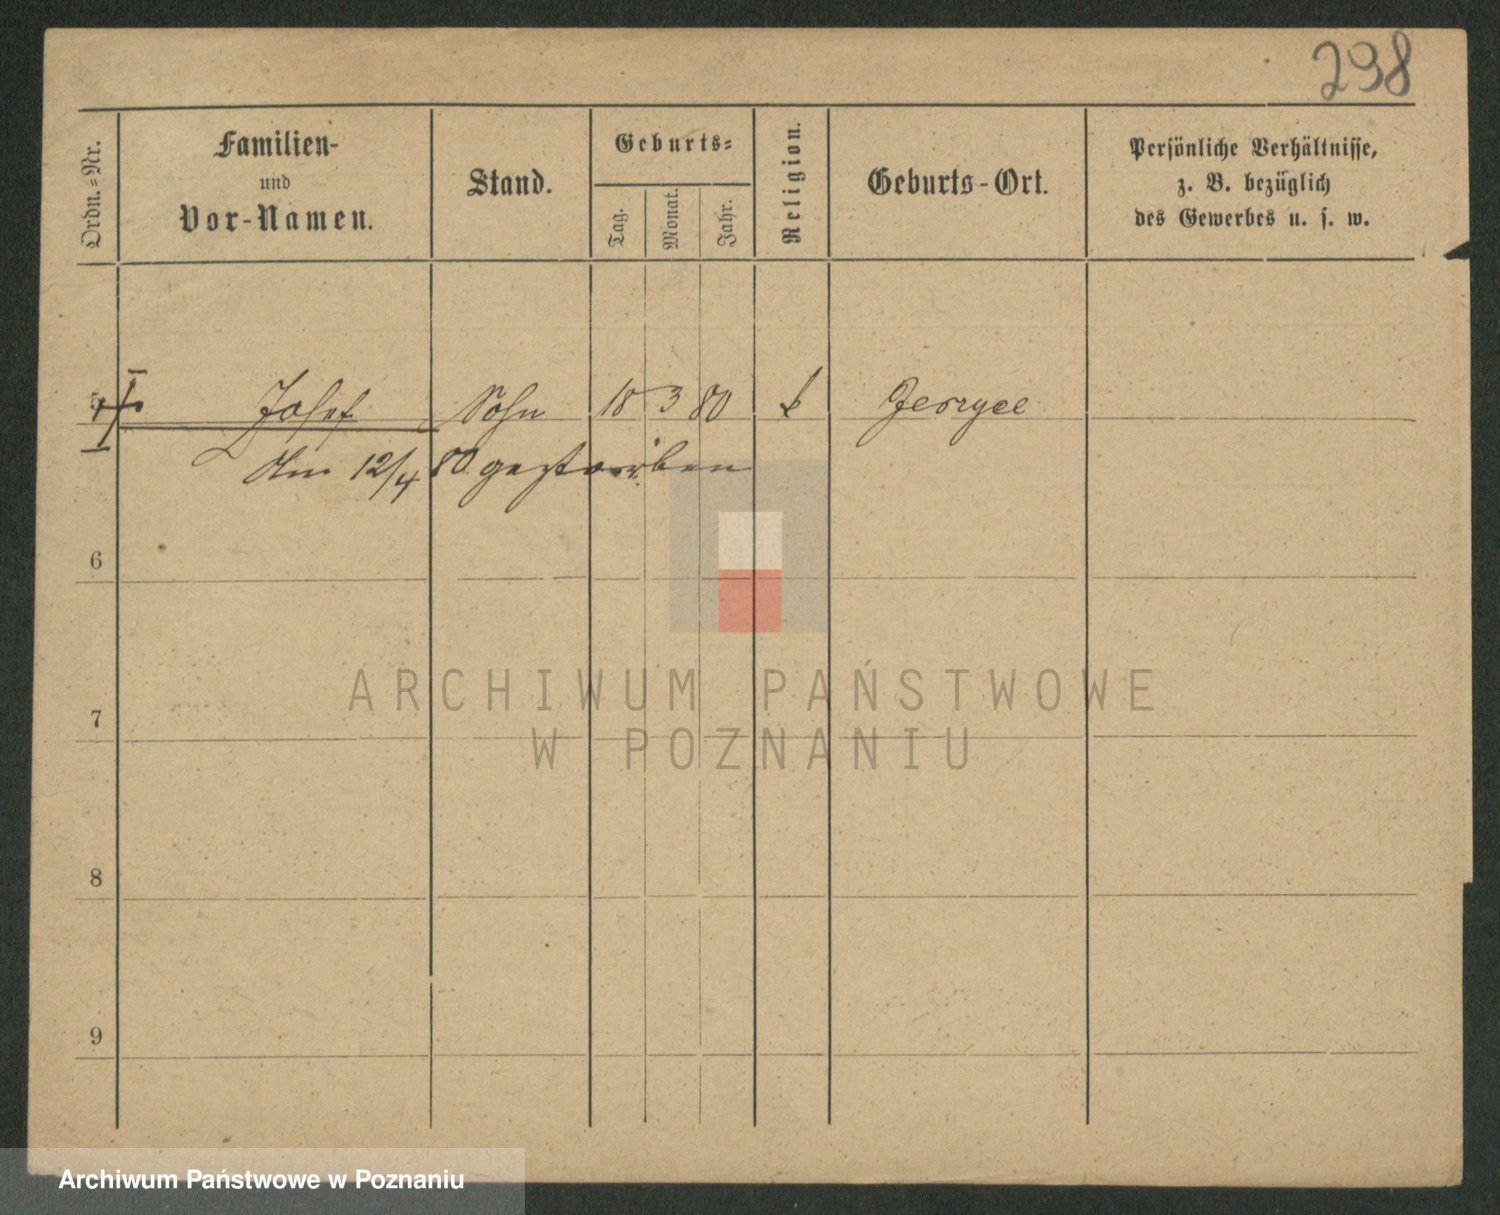 298
Ordn.-Nr.
Familien-
und
Vor-Namen.
Stand.
Geburts-
Tag.
Monat.
Jahr.
Religion.
Geburts-Ort.
Persönliche Verhältnisse,
z. B. bezüglich
des Gewerbes u. s. w.
5 Josef Sohn 18 3 80 k Jerzyce
Am 12/4 80 gestorben
6
7
8
9
ARCHIWUM PAŃSTWOWE
W POZNANIU
Archiwum Państwowe w Poznaniu